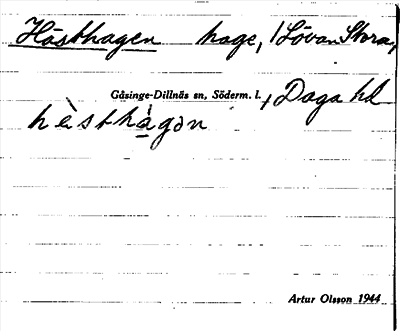 Hästhagen hage, /Lövan Stora,
Gåsinge-Dillnäs sn, Söderm. l., Daga hd
hèsthàgən
Artur Olsson 1944